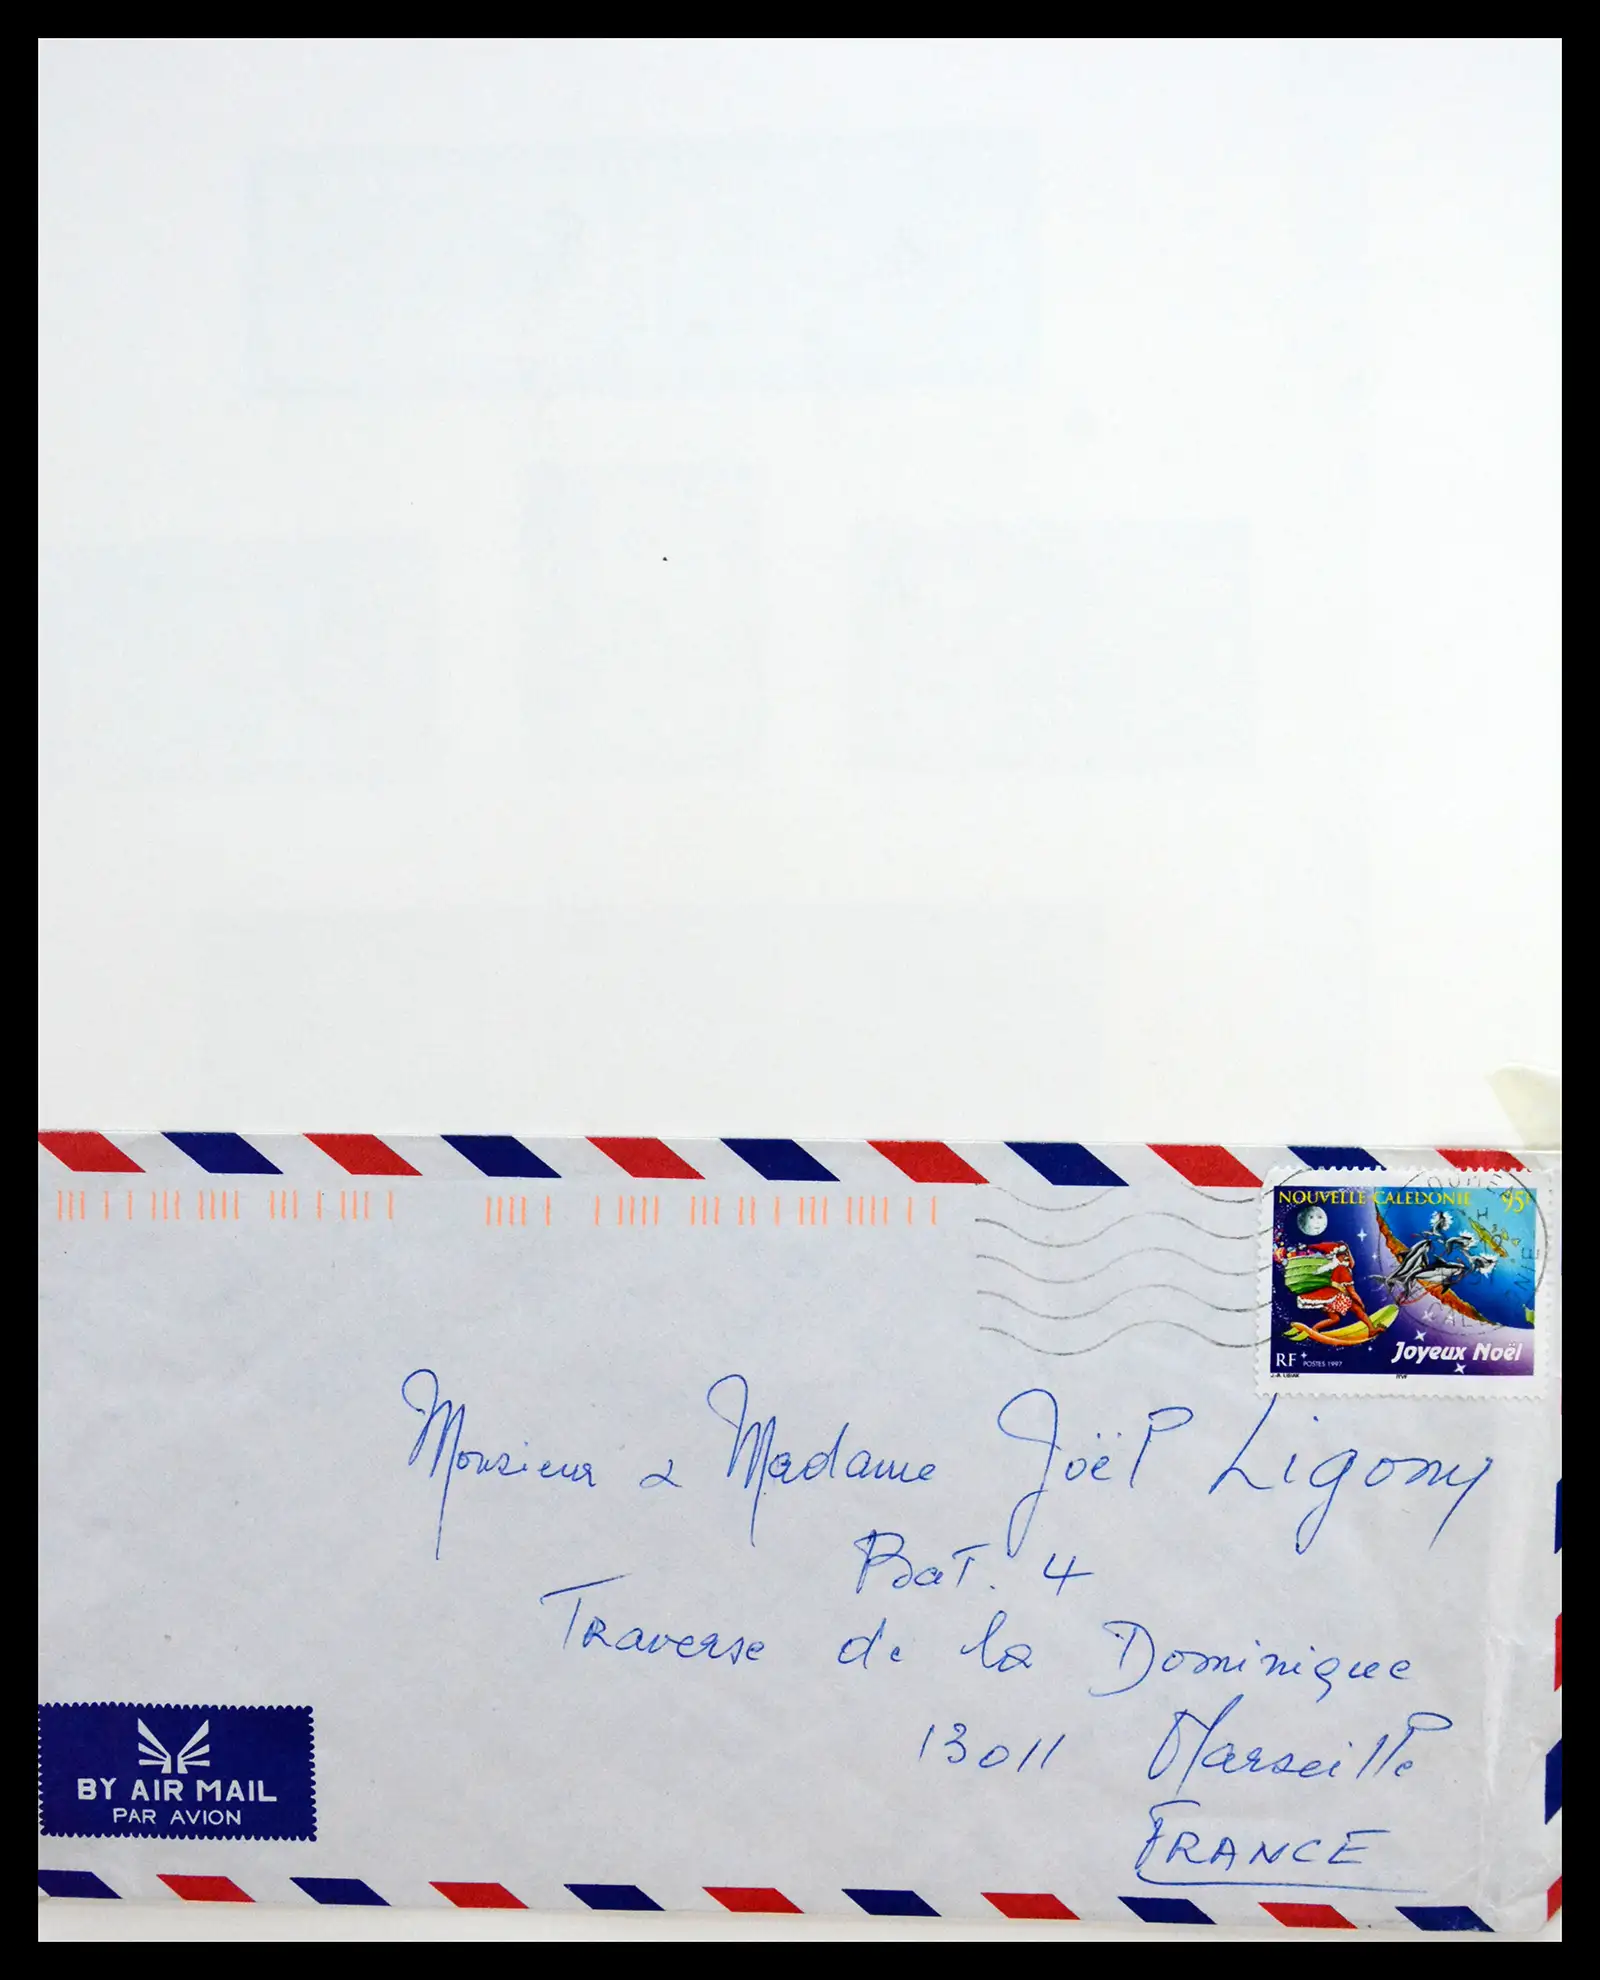 NOUVELLE-CALEDONIE 95F
RF POSTES 1997 Joyeux Noël
Monsieur & Madame Joël Ligony
Bat. 4
Traverse de la Dominique
13011 Marseille
FRANCE
BY AIR MAIL
PAR AVION